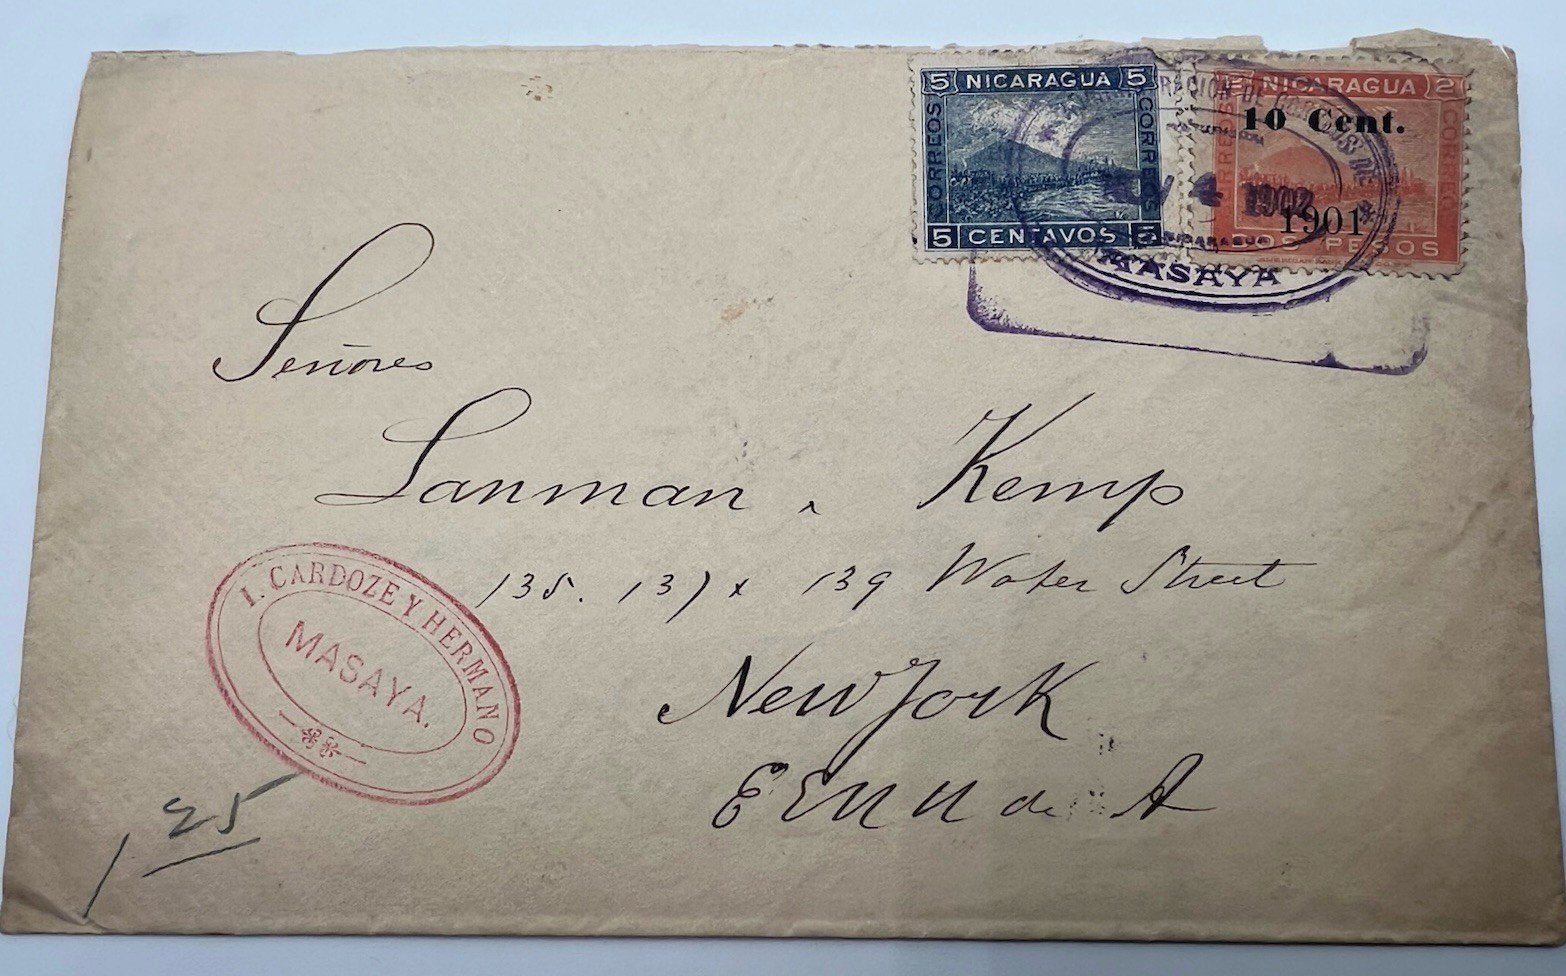 5 NICARAGUA 5
CORREOS
CORREOS
5 CENTAVOS 5
2 NICARAGUA 2
CORREOS
CORREOS
10 Cent.
1901
DOS PESOS
DE CORREOS DE
4 1902
NICARAGUA
MASAYA
Señores
Lanman & Kemp
135. 137 & 139 Water Street
New York
EE UU de A
I. CARDOZE Y HERMANO
MASAYA.
1 25